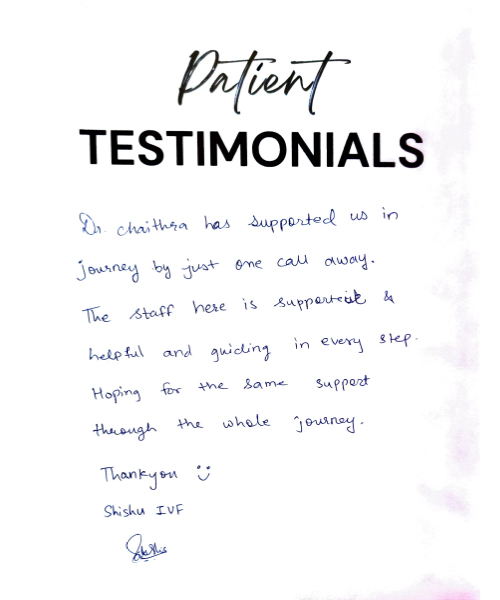 Patient
TESTIMONIALS
Dr. Chaithra has supported us in
journey by just one call away.
The staff here is supportive &
helpful and guiding in every step.
Hoping for the same support
through the whole journey.
Thankyou :)
Shishu IVF